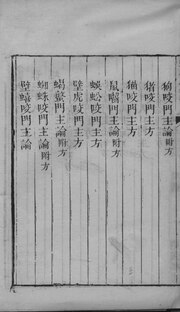 狗咬門主論附方
猪咬門主方
猫咬門主方
鼠嚙門主論附方
蜈蚣咬門主方
壁虎咬門主方
蝎螫門主論附方
蜘蛛咬門主論附方
壁蟢咬門主論